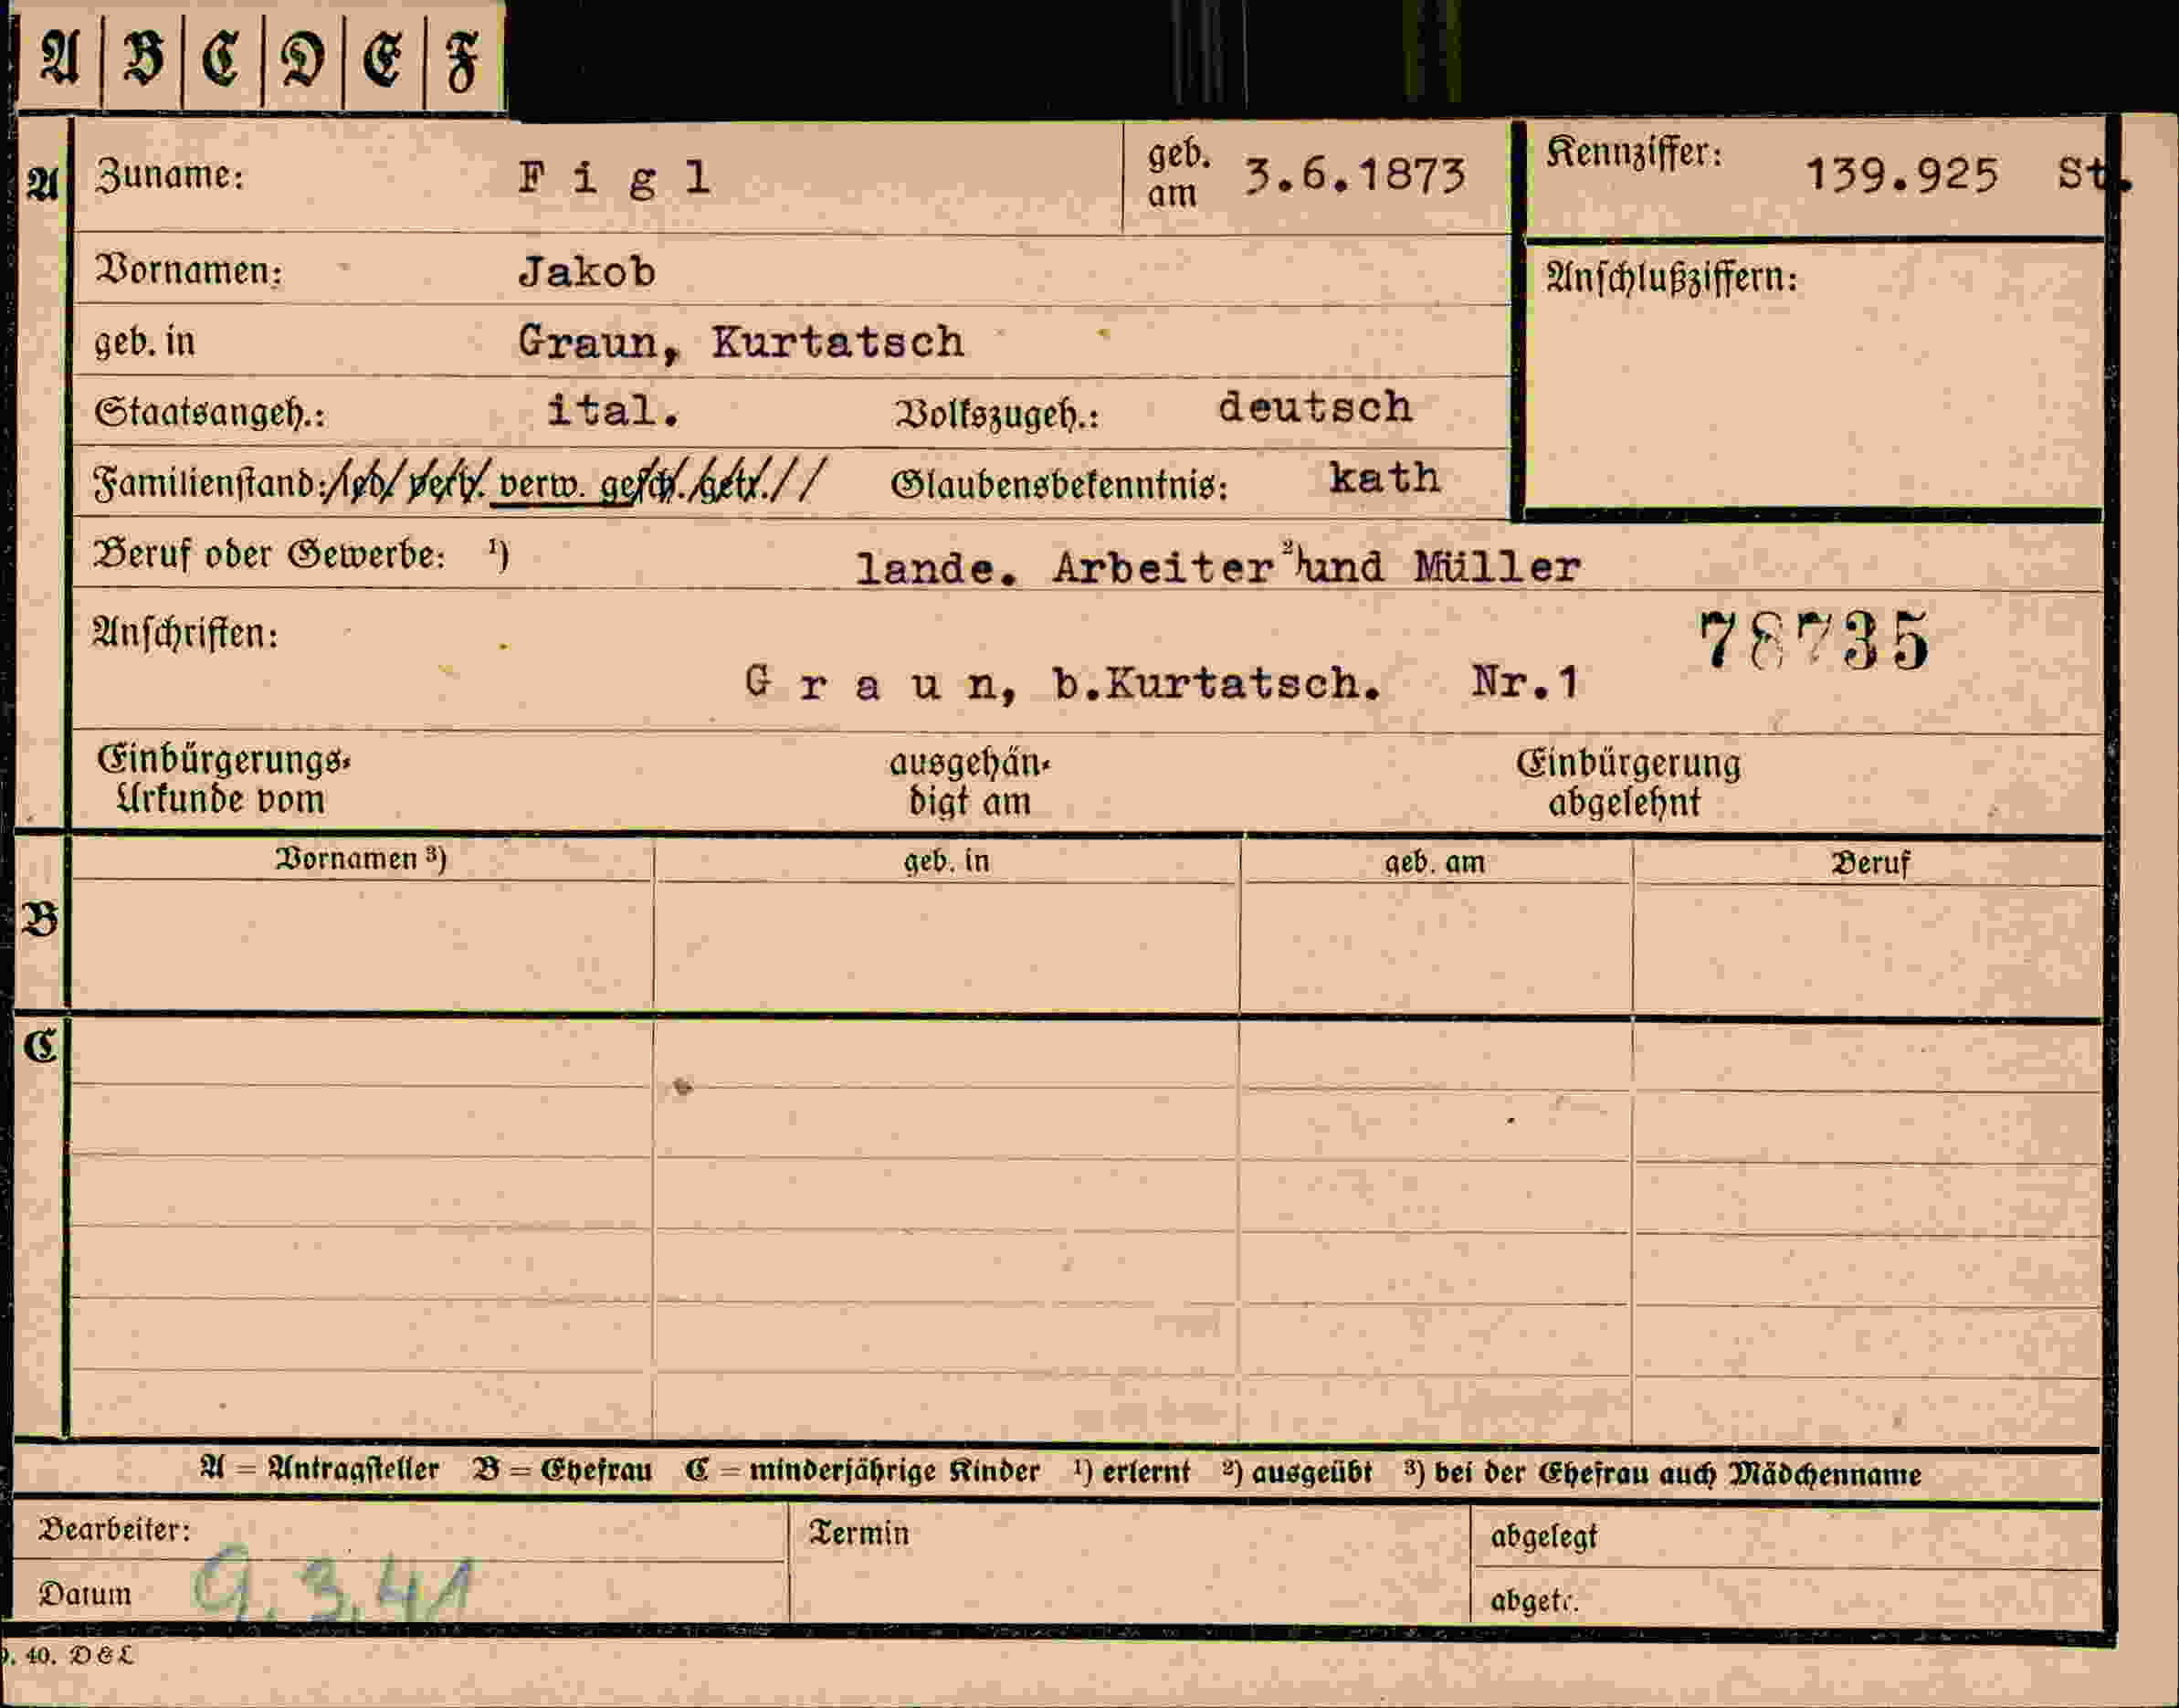 A B C D E F
A Zuname: F i g l geb. am 3.6.1873 Kennziffer: 139.925 St.
Vornamen: Jakob Anschlußziffern:
geb. in Graun, Kurtatsch
Staatsangeh.: ital. Volkszugeh.: deutsch
Familienstand: led. verh. verw. gesch. getr. Glaubensbekenntnis: kath
Beruf oder Gewerbe: ¹) lande. Arbeiter ²) und Müller
Anschriften: 78735
G r a u n, b.Kurtatsch. Nr.1
Einbürgerungs- ausgehän- Einbürgerung
Urkunde vom digt am abgelehnt
Vornamen ³) geb. in geb. am Beruf
B
C
A = Antragsteller B = Ehefrau C = minderjährige Kinder ¹) erlernt ²) ausgeübt ³) bei der Ehefrau auch Mädchenname
Bearbeiter: Termin abgelegt
Datum 9.3.41 abgetr.
40. D&L